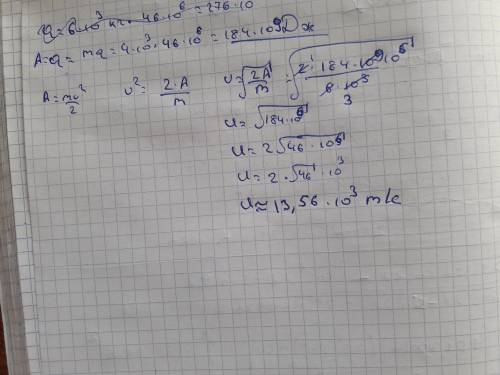 Q = 6·10³ кг · 46·10⁶ = 276·10
A=Q = mq = 4·10³·46·10⁶ = 184·10⁹ Дж
A = mυ²/2 υ² = 2·A/m υ = √(2A/m) = √(2·184·10⁹/6·10³) 3
υ = √(184·10⁶)
υ = 2√(46·10⁶)
υ = 2·√46·10³
υ ≈ 13,56·10³ м/с